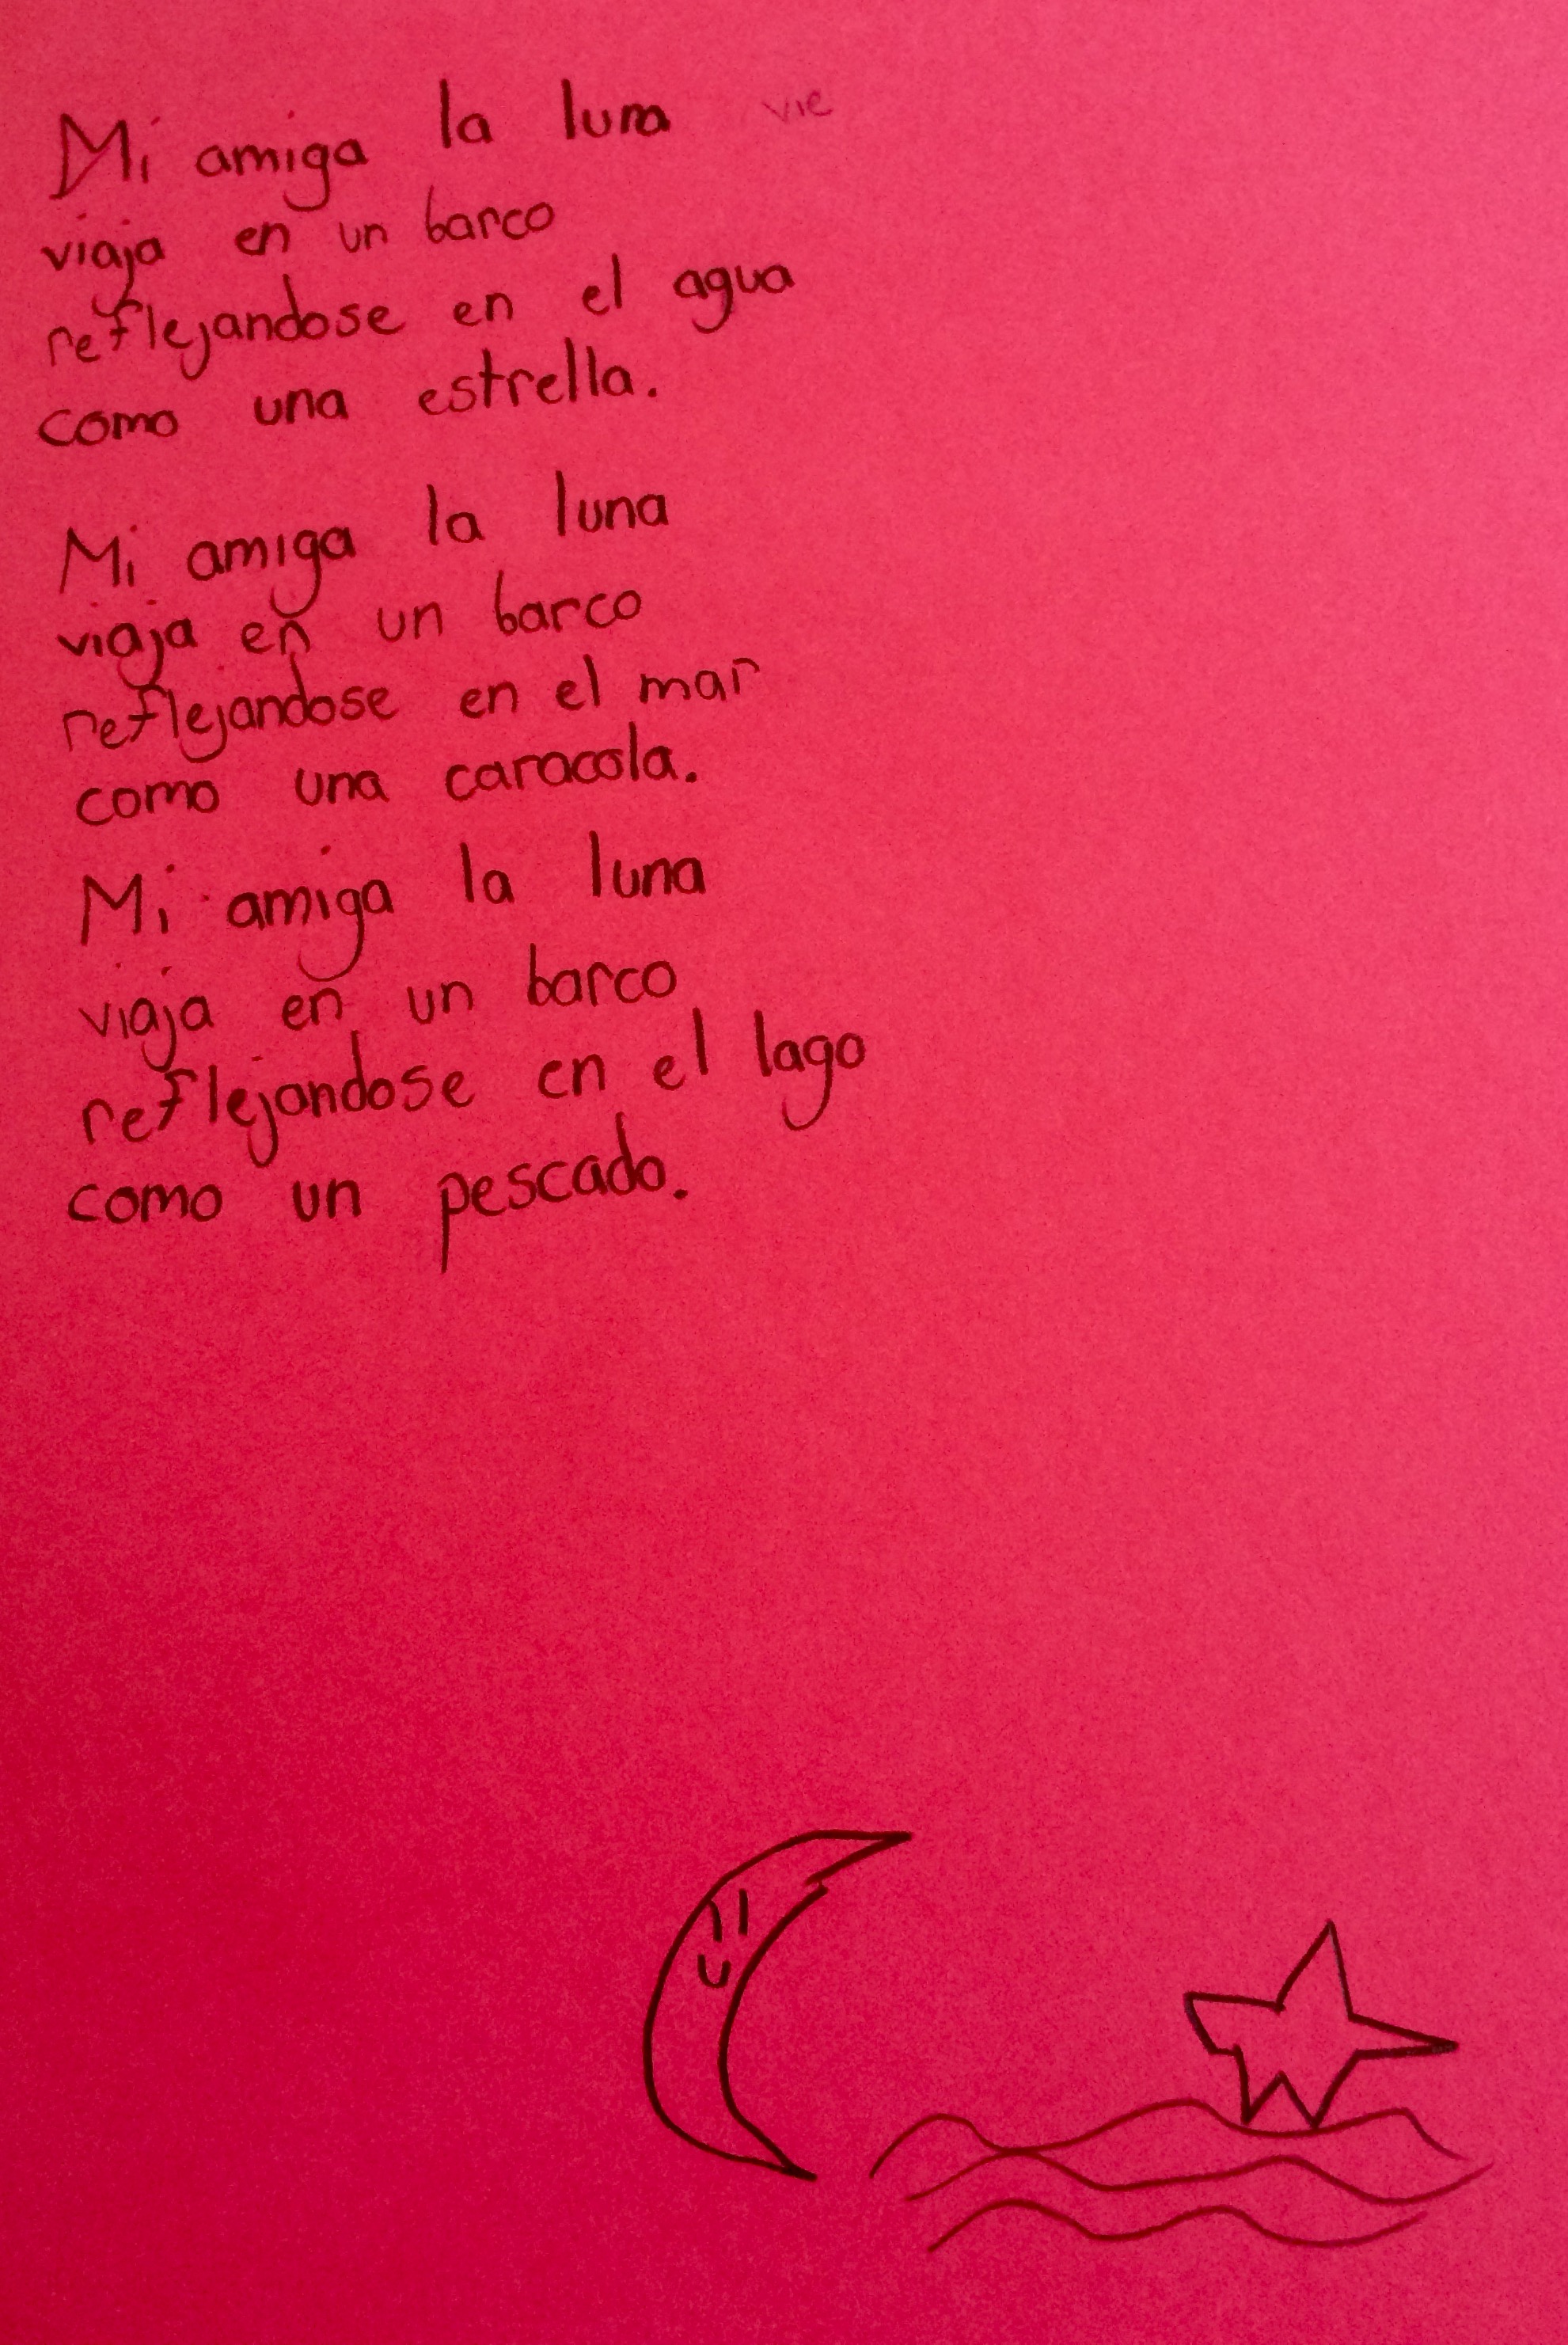 Mi amiga la luna vie
viaja en un barco
reflejandose en el agua
como una estrella.
Mi amiga la luna
viaja en un barco
reflejandose en el mar
como una caracola.
Mi amiga la luna
viaja en un barco
reflejandose en el lago
como un pescado.